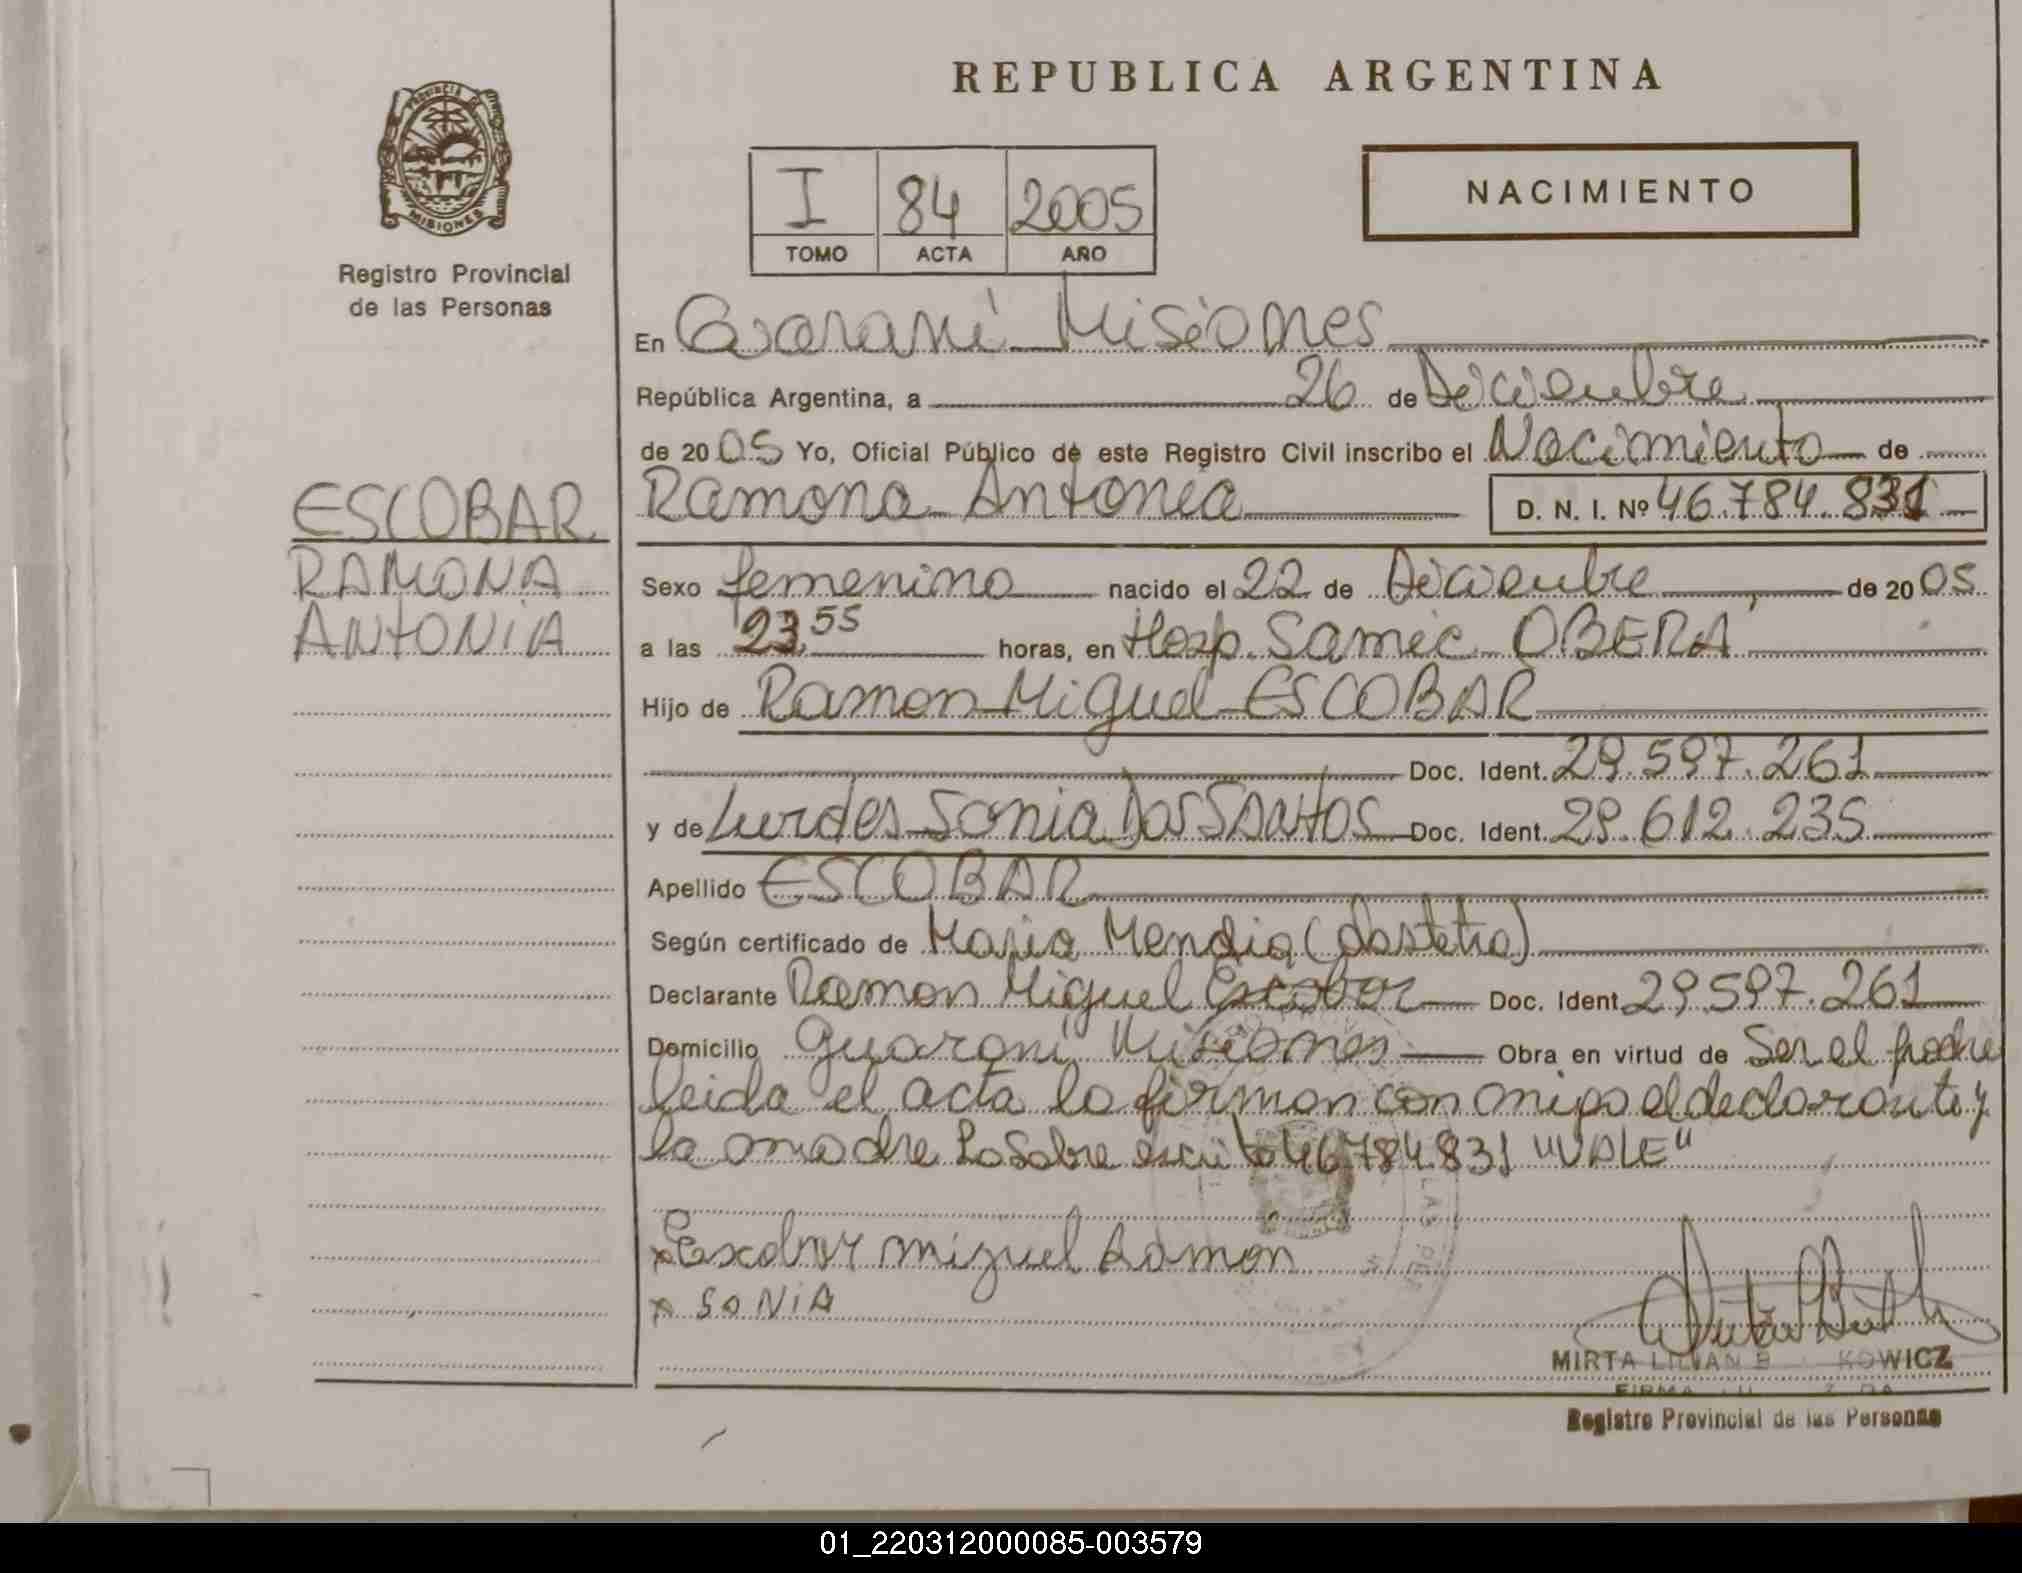 REPUBLICA ARGENTINA
PROVINCIA DE
MISIONES
Registro Provincial
de las Personas
I 84 2005
TOMO ACTA AÑO
NACIMIENTO
En Guaraní Misiones
República Argentina, a 26 de Diciembre
de 2005 Yo, Oficial Público de este Registro Civil inscribo el Nacimiento de
Ramona Antonia D. N. I. Nº 46.784.831
ESCOBAR
RAMONA
ANTONIA
Sexo femenino nacido el 22 de Diciembre de 2005
a las 23,55 horas, en Hosp. Samic OBERA
Hijo de Ramon Miguel ESCOBAR
Doc. Ident. 29.597.261
y de Lurdes Sonia Dos SANtOS Doc. Ident. 29.612.235
Apellido ESCOBAR
Según certificado de Maria Mendia (obstetra)
Declarante Ramon Miguel Escobar Doc. Ident 29.597.261
Domicilio Guarani Misiones Obra en virtud de Ser el padre
leida el acta la firman con migo el declarante y
la madre Lo Sobre escrito 46784.831 "VALE"
x Escobar miguel Ramon
x SONIA
LAS PER
MIRTA LILIAN B KOWICZ
FIRMA
Registro Provincial de las Personas
01_220312000085-003579